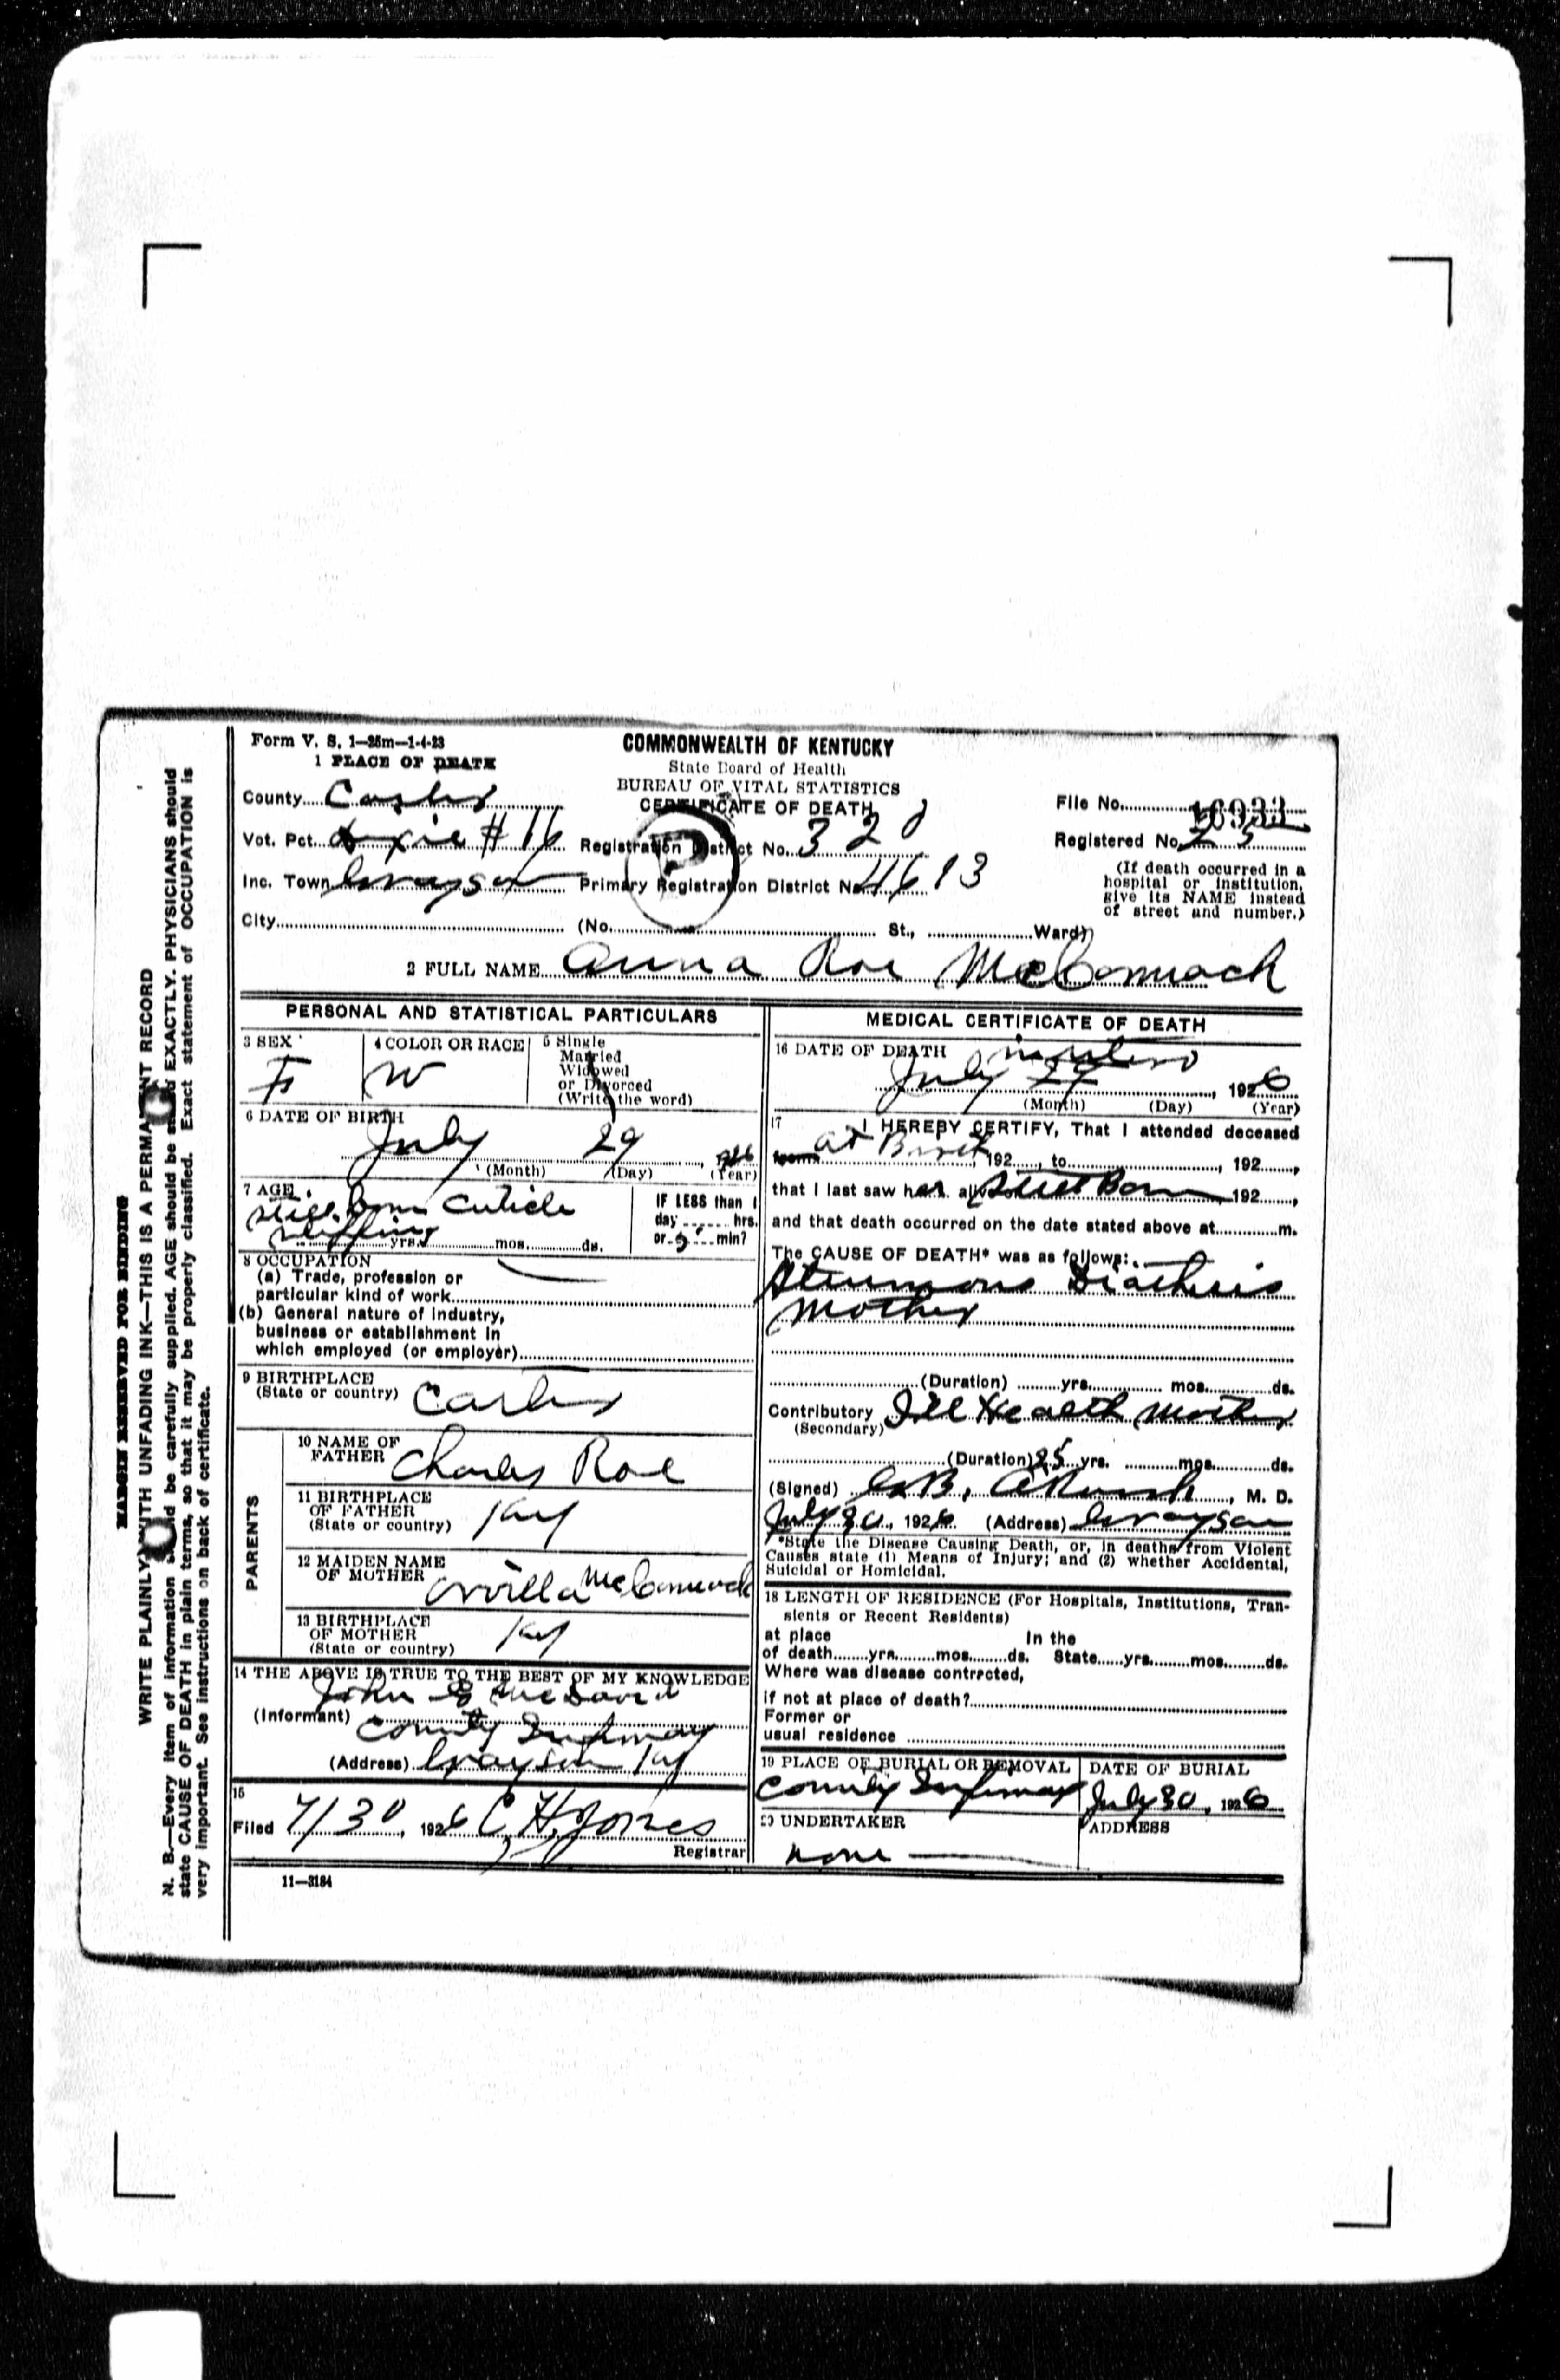 Form V. S. 1—25m—1-4-23
1 PLACE OF DEATH
COMMONWEALTH OF KENTUCKY
State Board of Health
BUREAU OF VITAL STATISTICS
CERTIFICATE OF DEATH
County Carter
File No. 16933
Vot. Pct. # 16 Registration District No. 320
Registered No. 25
Inc. Town Grayson Primary Registration District No. 4613
(If death occurred in a
hospital or institution,
give its NAME instead
of street and number.)
City (No. St., Ward)
P
2 FULL NAME Anna Roe McCormack
PERSONAL AND STATISTICAL PARTICULARS
3 SEX
F
4 COLOR OR RACE
W
5 Single
Married
Widowed
or Divorced
(Write the word)
6 DATE OF BIRTH
July 29, 1926
(Month) (Day) (Year)
7 AGE
still born cuticle
yrs. mos. ds.
IF LESS than 1
day hrs.
or min?
8 OCCUPATION
(a) Trade, profession or
particular kind of work
(b) General nature of industry,
business or establishment in
which employed (or employer)
9 BIRTHPLACE
(State or country) Carter
PARENTS
10 NAME OF
FATHER Charles Roe
11 BIRTHPLACE
OF FATHER
(State or country) Ky
12 MAIDEN NAME
OF MOTHER McCormack
13 BIRTHPLACE
OF MOTHER
(State or country) Ky
14 THE ABOVE IS TRUE TO THE BEST OF MY KNOWLEDGE
John
(Informant) County Infirmary
(Address) Grayson Ky
15
Filed 7/30, 1926 C. H. Jones
Registrar
11—3184
MEDICAL CERTIFICATE OF DEATH
16 DATE OF DEATH in utero
July 27, 1926
(Month) (Day) (Year)
17 I HEREBY CERTIFY, That I attended deceased
from at Birth, 192, to , 192,
that I last saw her alive Still Born 192,
and that death occurred on the date stated above at m.
The CAUSE OF DEATH* was as follows:
Strumous Diathesis
Mother
(Duration) yrs. mos. ds.
Contributory Ill Health Mother
(Secondary)
(Duration) 25 yrs. mos. ds.
(Signed) , M. D.
July 30, 1926 (Address) Grayson
*State the Disease Causing Death, or, in deaths from Violent
Causes state (1) Means of Injury; and (2) whether Accidental,
Suicidal or Homicidal.
18 LENGTH OF RESIDENCE (For Hospitals, Institutions, Tran-
sients or Recent Residents)
at place In the
of death yrs. mos. ds. State yrs. mos. ds.
Where was disease contrected,
if not at place of death?
Former or
usual residence
19 PLACE OF BURIAL OR REMOVAL
County Infirmary
DATE OF BURIAL
July 30, 1926
20 UNDERTAKER
none
ADDRESS
MARGIN RESERVED FOR BINDING
WRITE PLAINLY WITH UNFADING INK—THIS IS A PERMANENT RECORD
N. B.—Every item of information should be carefully supplied. AGE should be stated EXACTLY. PHYSICIANS should
state CAUSE OF DEATH in plain terms, so that it may be properly classified. Exact statement of OCCUPATION is
very important. See instructions on back of certificate.